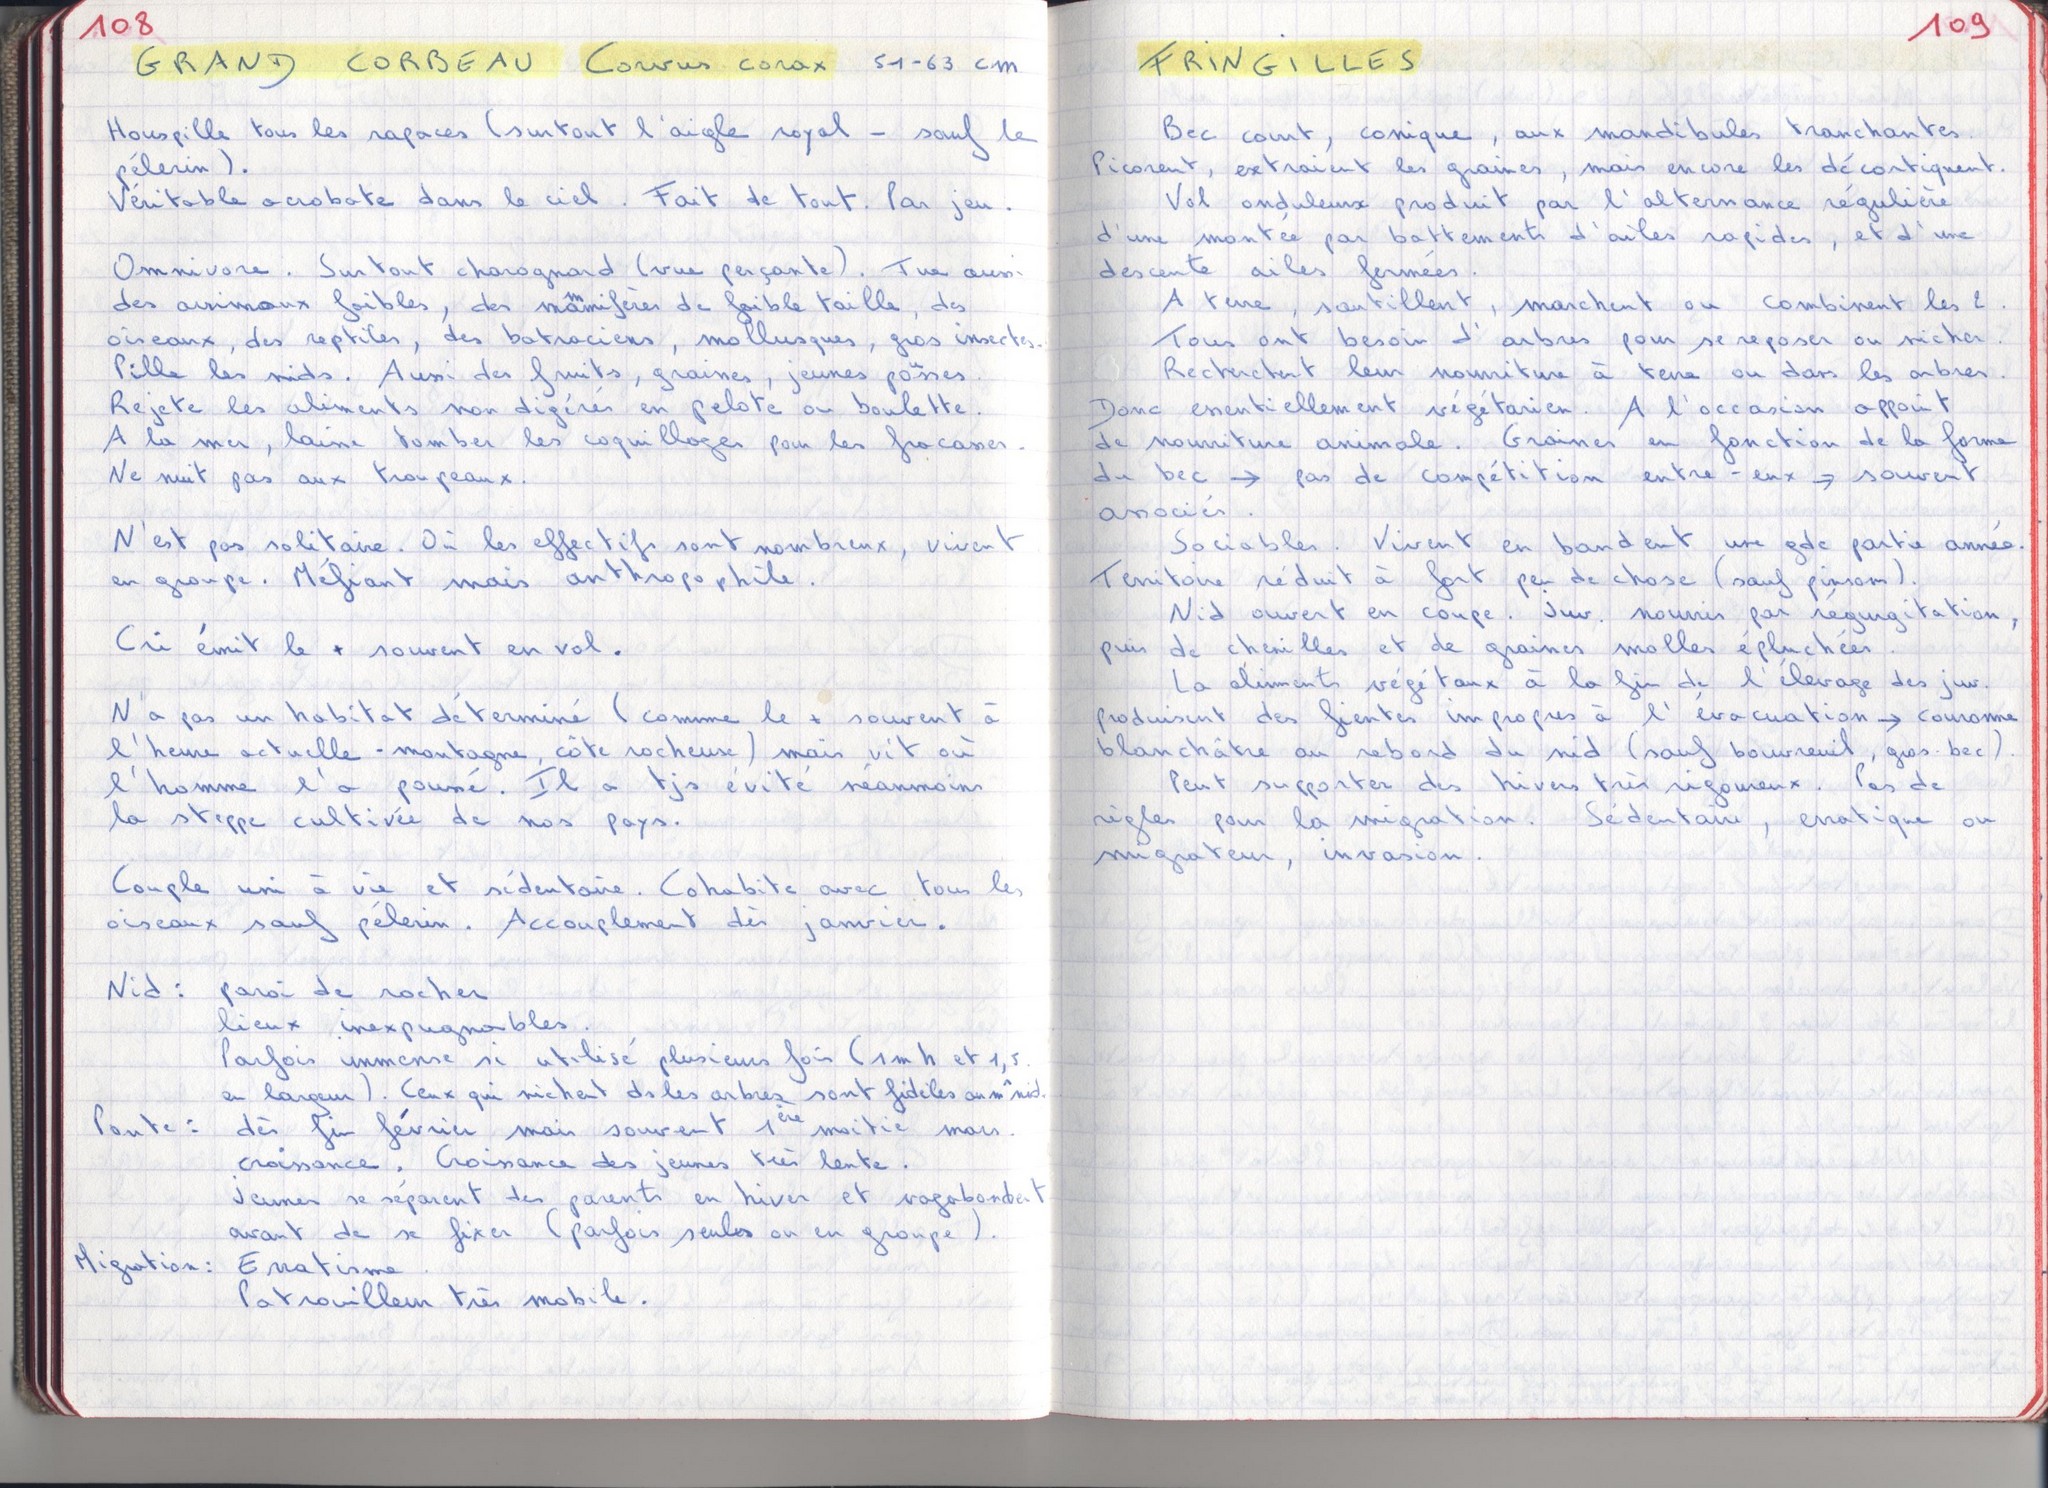 108
GRAND CORBEAU Corvus corax 51-63 cm
Houspille tous les rapaces (surtout l'aigle royal - sauf le
pélerin).
Véritable acrobate dans le ciel. Fait de tout. Par jeu.
Omnivore. Surtout charognard (vue perçante). Tue aussi
des animaux faibles, des mammifères de faible taille, des
oiseaux, des reptiles, des batraciens, mollusques, gros insectes.
Pille les nids. Aussi des fruits, graines, jeunes pousses.
Rejete les aliments non digérés en pelote ou boulette.
A la mer, laisse tomber les coquillages pour les fracasser.
Ne nuit pas aux troupeaux.
N'est pas solitaire. Où les effectifs sont nombreux, vivent
en groupe. Méfiant mais anthropophile.
Cri émit le + souvent en vol.
N'a pas un habitat déterminé (comme le + souvent à
l'heure actuelle - montagne, côte rocheuse) mais vit où
l'homme l'a poussé. Il a tjs évité néanmoins
la steppe cultivée de nos pays.
Couple uni à vie et sédentaire. Cohabite avec tous les
oiseaux sauf pélerin. Accouplement dès janvier.
Nid : paroi de rocher
lieux inexpugnables.
Parfois immense si utilisé plusieurs fois (1m h et 1,5
en largeur). Ceux qui nichent ds les arbres sont fidèles au m̂ nid.
Ponte : dès fin février mais souvent 1ère moitié mars.
croissance. Croissance des jeunes très lente.
Jeunes se séparent des parents en hiver et vagabondent
avant de se fixer (parfois seuls ou en groupe).
Migration : Erratisme.
Patrouilleur très mobile.
109
FRINGILLES
Bec court, conique, aux mandibules tranchantes.
Picorent, extraient les graines, mais encore les décortiquent.
Vol onduleux produit par l'alternance régulière
d'une montée par battements d'ailes rapides, et d'une
descente ailes fermées.
A terre, sautillent, marchent ou combinent les 2.
Tous ont besoin d'arbres pour se reposer ou nicher.
Recherchent leur nourriture à terre ou dans les arbres.
Donc essentiellement végétarien. A l'occasion appoint
de nourriture animale. Graines en fonction de la forme
du bec → pas de compétition entre-eux → souvent
associés.
Sociables. Vivent en bandent une gde partie année.
Territoire réduit à fort peu de chose (sauf pinson).
Nid ouvert en coupe. Juv. nourris par régurgitation,
puis de chenilles et de graines molles épluchées.
La aliments végétaux à la fin de l'élevage des juv.
produisent des fientes impropres à l'évacuation → couronne
blanchâtre au rebord du nid (sauf bouvreuil, gros-bec).
Peut supporter des hivers très rigoureux. Pas de
règles pour la migration. Sédentaire, erratique ou
migrateur, invasion.